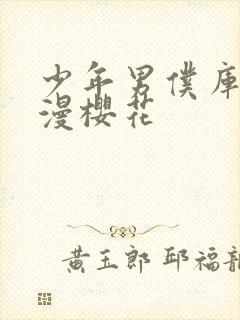 少年男僕庫
漫櫻花
黃玉郎 邱福龍